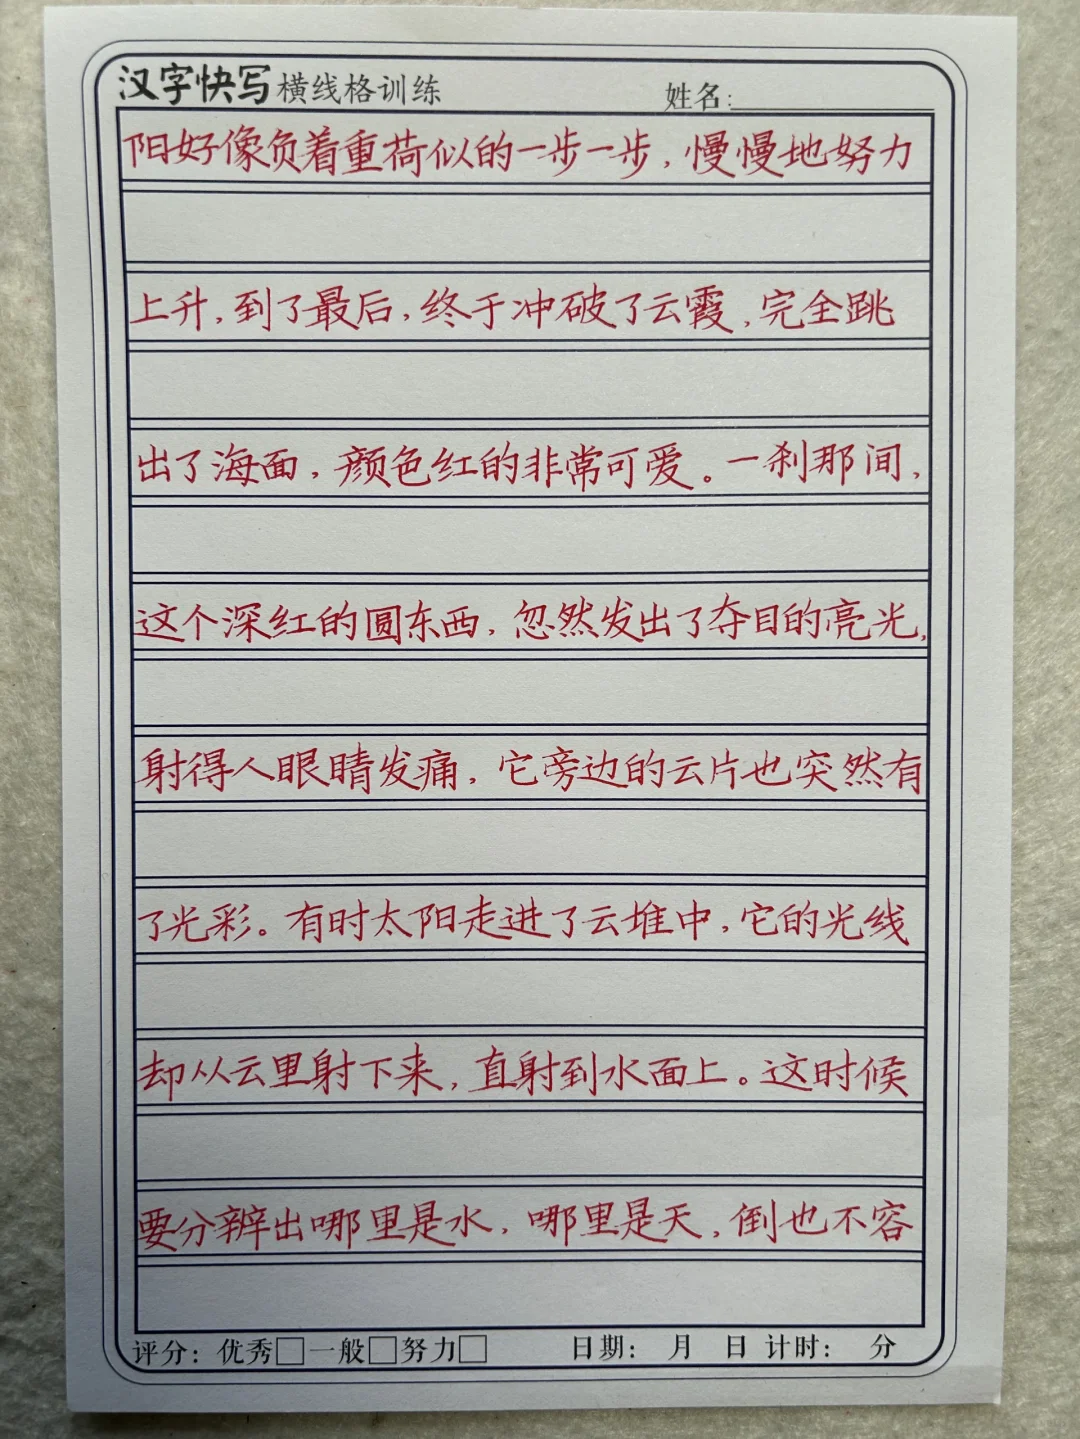 汉字快写横线格训练 姓名:
阳好像负着重荷似的一步一步，慢慢地努力
上升，到了最后，终于冲破了云霞，完全跳
出了海面，颜色红的非常可爱。一刹那间，
这个深红的圆东西，忽然发出了夺目的亮光，
射得人眼睛发痛，它旁边的云片也突然有
了光彩。有时太阳走进了云堆中，它的光线
却从云里射下来，直射到水面上。这时候
要分辨出哪里是水，哪里是天，倒也不容
评分：优秀□一般□努力□ 日期： 月 日 计时： 分